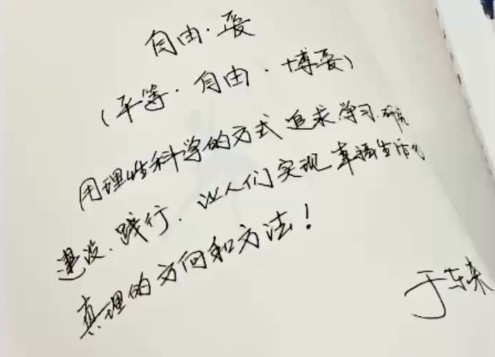 自由·爱
(平等·自由·博爱)
用理性科学的方式追求学习、研究
建设、践行、让人们实现幸福生活的
真理的方向和方法!
于东来